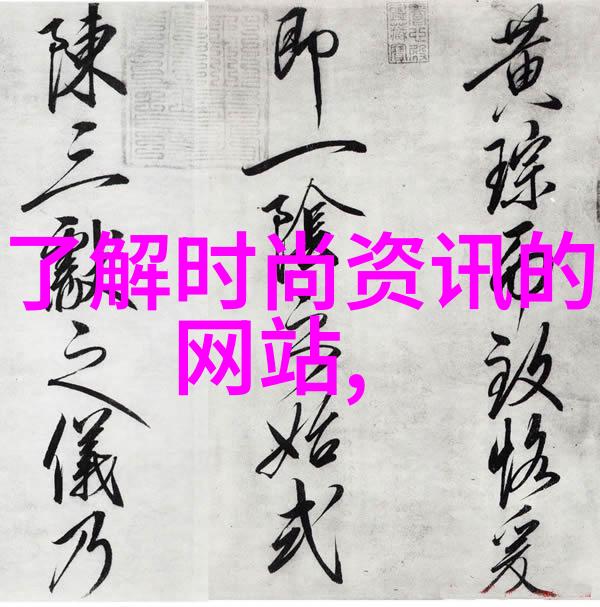 了解时尚资讯的
网站,
黄琮而致恪爰
即一陰之始式
陳三獻之儀乃